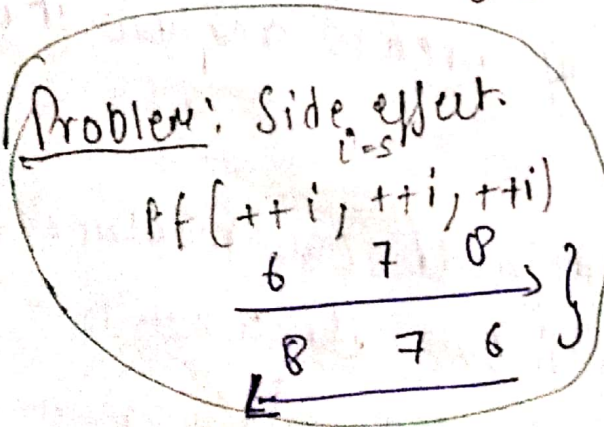 Problem: Side effect.
i=5
Pf(++i, ++i, ++i)
6 7 8
8 7 6